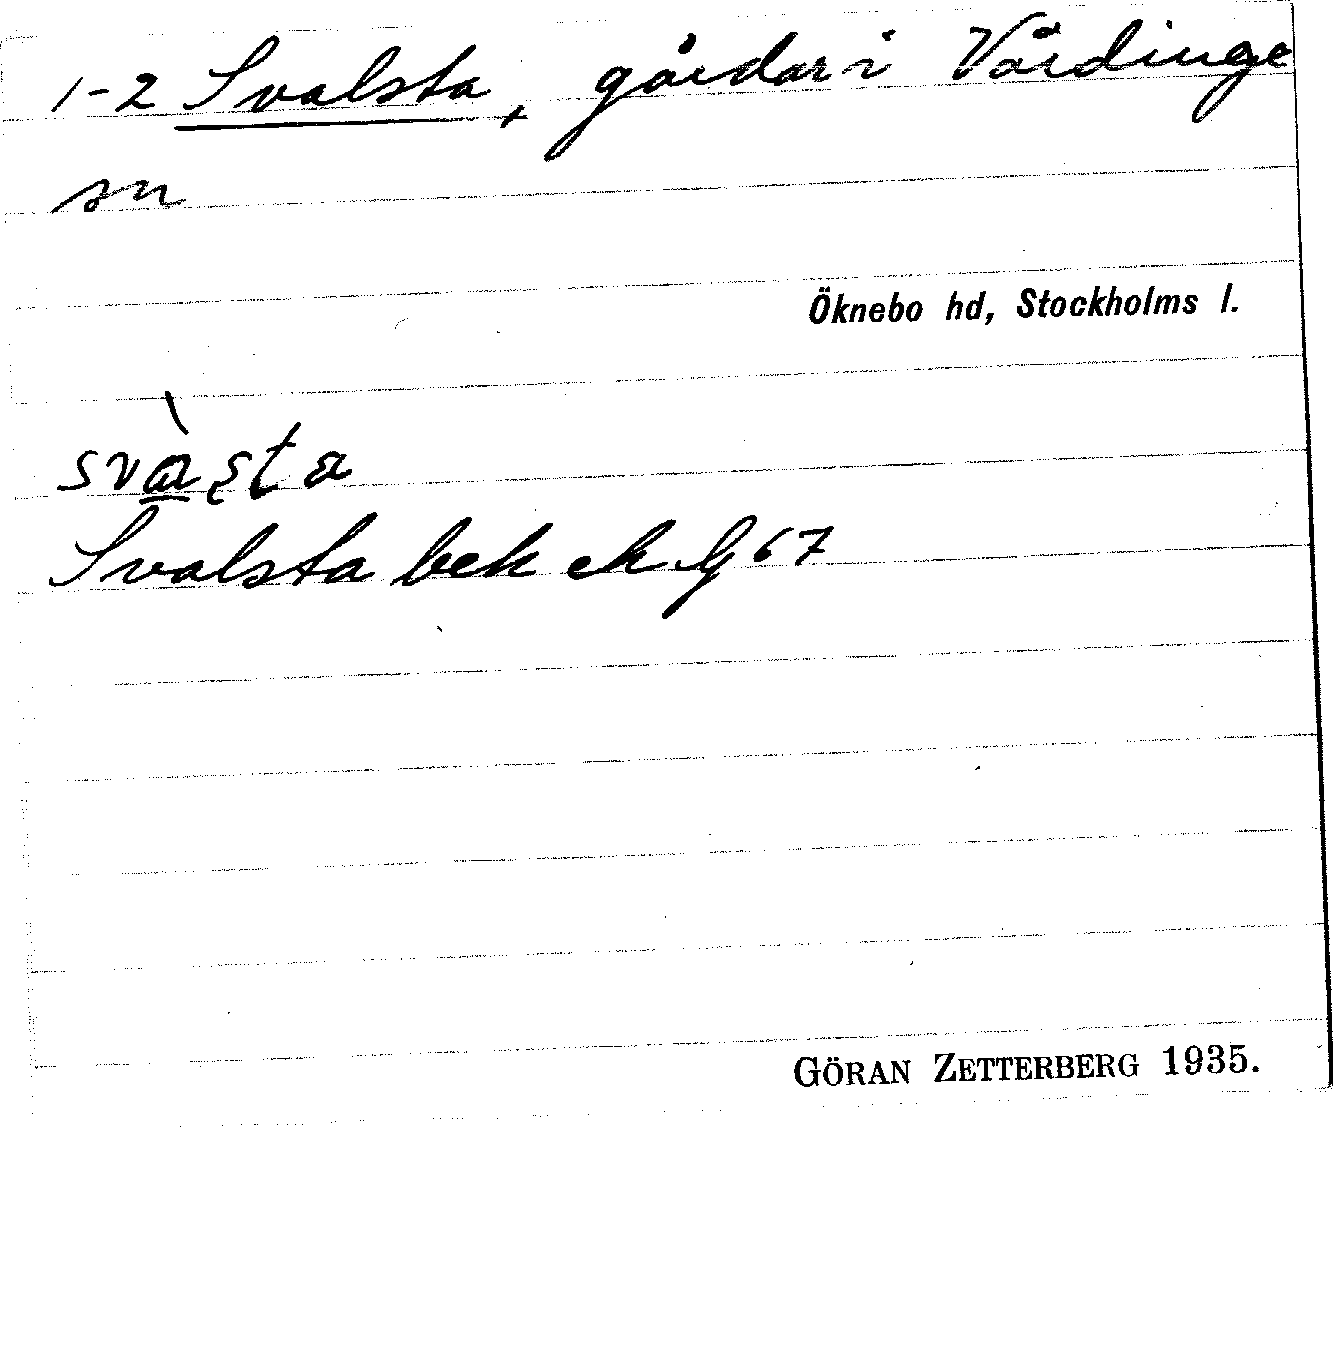 1-2 Svalsta, gårdar i Vårdinge
sn
Öknebo hd, Stockholms l.
Svalsta bek
67
GÖRAN ZETTERBERG 1935.